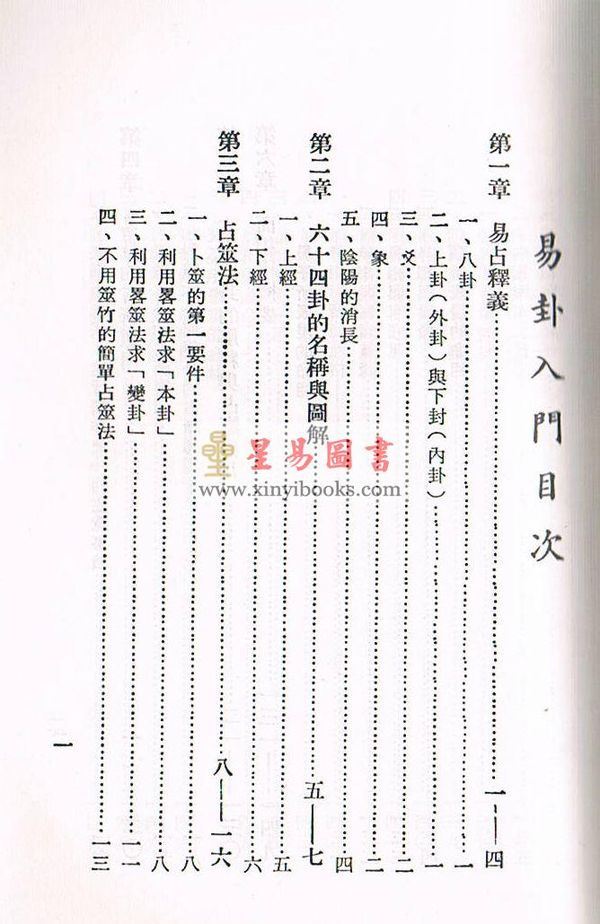 易卦入門目次
第一章 易占釋義……一—四
一、八卦……一
二、上卦(外卦)與下封(內卦)……一
三、爻……二
四、象……二
五、陰陽的消長……四
第二章 六十四卦的名稱與圖解……五—七
一、上經……五
二、下經……六
第三章 占筮法……八—一六
一、卜筮的第一要件……八
二、利用畧筮法求「本卦」……八
三、利用畧筮法求「變卦」……一一
四、不用筮竹的簡單占筮法……一三
一
星易圖書
www.xinyibooks.com